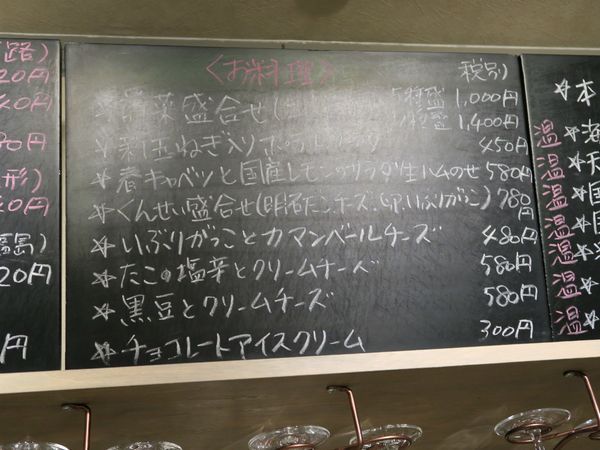 路)
20円
40円
80円
形)
40円
福島)
20円
円
〈お料理〉 税別
☆前菜盛合せ( 5種盛 1,000円
種盛 1,400円
☆新玉ねぎ入り 450円
☆春キャベツと国産レモンのサラダ生ハムのせ 580円
☆くんせい盛合せ(明太たこ、チーズ、いぶりがっこ) 780円
☆いぶりがっことカマンベールチーズ 480円
☆たこの塩辛とクリームチーズ 580円
☆黒豆とクリームチーズ 580円
☆チョコレートアイスクリーム 300円
☆本
温☆
温☆天
温☆国
温☆国
温☆
温☆
温☆